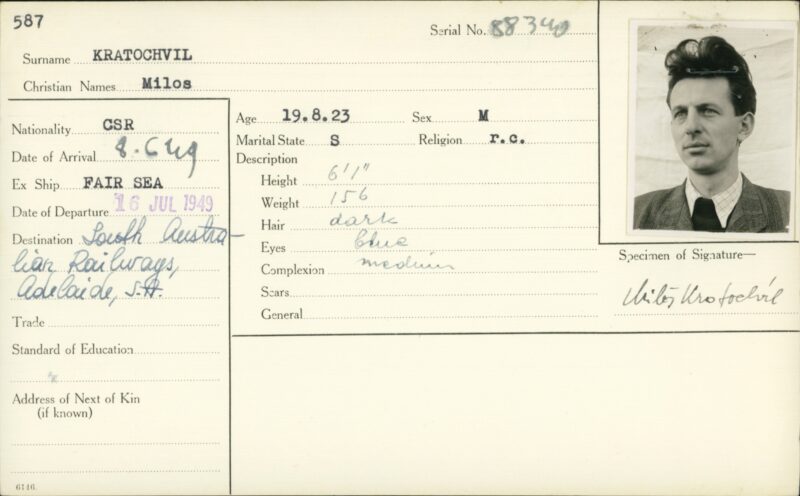 587
Serial No. 88340
Surname KRATOCHVIL
Christian Names Milos
Nationality CSR
Date of Arrival 8.6.49
Ex Ship FAIR SEA
Date of Departure 16 JUL 1949
Destination South Austra-
lian Railways,
Adelaide, S.A.
Trade
Standard of Education
Address of Next of Kin
(if known)
6746.
Age 19.8.23 Sex M
Marital State S Religion r.c.
Description
Height 6'1"
Weight 156
Hair dark
Eyes blue
Complexion medium
Scars
General
Specimen of Signature—
Miloš Kratochvíl